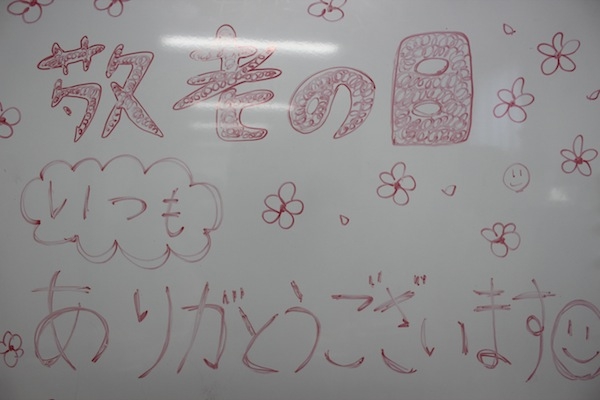 敬老の日
いつも
ありがとうございます